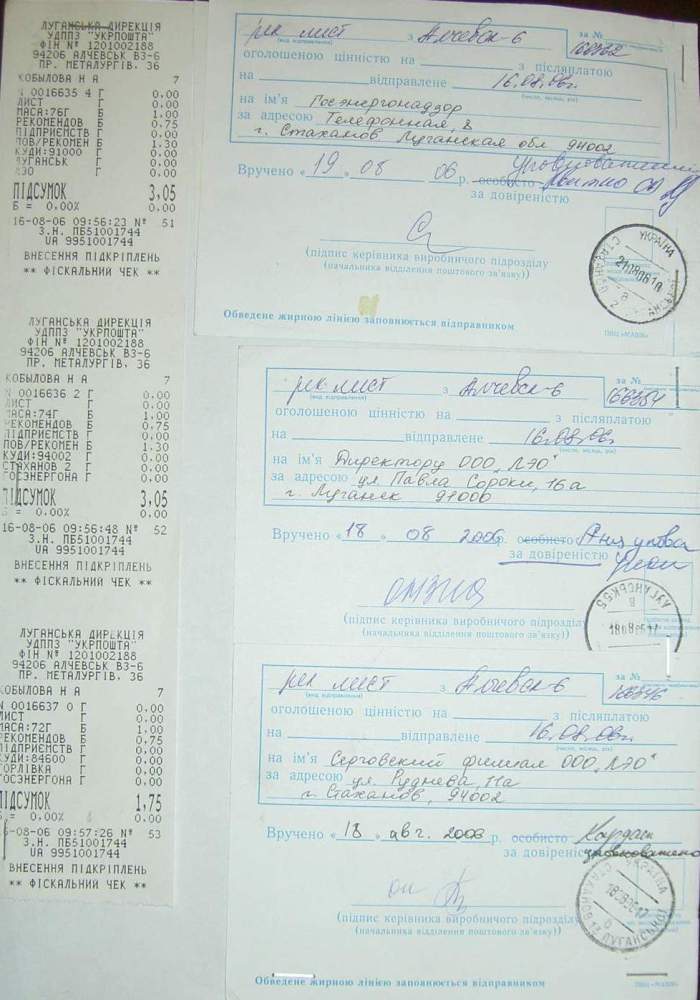 ЛУГАНСЬКА ДИРЕКЦІЯ
УДППЗ "УКРПОШТА"
ФІН № 1201002188
94206 АЛЧЕВСЬК ВЗ-6
ПР. МЕТАЛУРГІВ. 36
КОБЫЛОВА Н А 7
N 0016635 4 Г 0.00
ЛИСТ Г 0.00
МАСА:76Г Б 1.00
РЕКОМЕНДОВ Б 0.75
ПІДПРИЄМСТВ Г 0.00
ПОВ/РЕКОМЕН Б 1.30
КУДИ:91000 Г 0.00
ЛУГАНСЬК Г 0.00
ЛЭО Г 0.00
ПІДСУМОК 3,05
Б = 0.00% 0.00
16-08-06 09:56:23 № 51
З.Н. ПБ51001744
UA 9951001744
ВНЕСЕННЯ ПІДКРІПЛЕНЬ
** ФІСКАЛЬНИЙ ЧЕК **
ЛУГАНСЬКА ДИРЕКЦІЯ
УДППЗ "УКРПОШТА"
ФІН № 1201002188
94206 АЛЧЕВСЬК ВЗ-6
ПР. МЕТАЛУРГІВ. 36
КОБЫЛОВА Н А 7
N 0016636 2 Г 0.00
ЛИСТ Г 0.00
МАСА:74Г Б 1.00
РЕКОМЕНДОВ Б 0.75
ПІДПРИЄМСТВ Г 0.00
ПОВ/РЕКОМЕН Б 1.30
КУДИ:94002 Г 0.00
СТАХАНОВ 2 Г 0.00
ГОСЭНЕРГОНА Г 0.00
ПІДСУМОК 3,05
= 0.00% 0.00
16-08-06 09:56:48 № 52
З.Н. ПБ51001744
UA 9951001744
ВНЕСЕННЯ ПІДКРІПЛЕНЬ
** ФІСКАЛЬНИЙ ЧЕК **
ЛУГАНСЬКА ДИРЕКЦІЯ
УДППЗ "УКРПОШТА"
ФІН № 1201002188
94206 АЛЧЕВСЬК ВЗ-6
ПР. МЕТАЛУРГІВ. 36
КОБЫЛОВА Н А 7
N 0016637 0 Г 0.00
ЛИСТ Г 0.00
МАСА:72Г Б 1.00
РЕКОМЕНДОВ Б 0.75
ПІДПРИЄМСТВ Г 0.00
КУДИ:84600 Г 0.00
ГОРЛІВКА Г 0.00
ГОСЭНЕРГОНА Г 0.00
ПІДСУМОК 1,75
= 0.00% 0.00
6-08-06 09:57:26 № 53
З.Н. ПБ51001744
UA 9951001744
ВНЕСЕННЯ ПІДКРІПЛЕНЬ
** ФІСКАЛЬНИЙ ЧЕК **
рек лист з Алчевск-6 за №
(вид відправлення)
оголошеною цінністю на з післяплатою
на відправлене 16.08.06г.
(число, місяць, рік)
на ім'я Госэнергонадзор
за адресою Телефонная, 8
г. Стаханов Луганская обл 94002
Вручено «19» 08 06 р. особисто
за довіреністю
(підпис керівника виробничого підрозділу
(начальника відділення поштового зв'язку))
УКРАЇНА
21080618
Обведене жирною лінією заповнюється відправником
рек лист з Алчевск-6 за №
(вид відправлення)
оголошеною цінністю на з післяплатою
на відправлене 16.08.06г.
(число, місяць, рік)
на ім'я Директору ООО „ЛЭО"
за адресою ул Павла Сороки, 16а
г. Луганск 91000
Вручено «18» 08 2006 р. особисто
за довіреністю
(підпис керівника виробничого підрозділу
(начальника відділення поштового зв'язку))
ЛУГАНСЬК-55
рек лист з Алчевск-6 за №
(вид відправлення)
оголошеною цінністю на з післяплатою
на відправлене 16.08.06г.
(число, місяць, рік)
на ім'я Серговский филиал ООО „ЛЭО"
за адресою ул. Руднева, 11а
г. Стаханов, 94002
Вручено «18» авг. 2006 р. особисто
за довіреністю
(підпис керівника виробничого підрозділу
(начальника відділення поштового зв'язку))
УКРАЇНА
Обведене жирною лінією заповнюється відправником